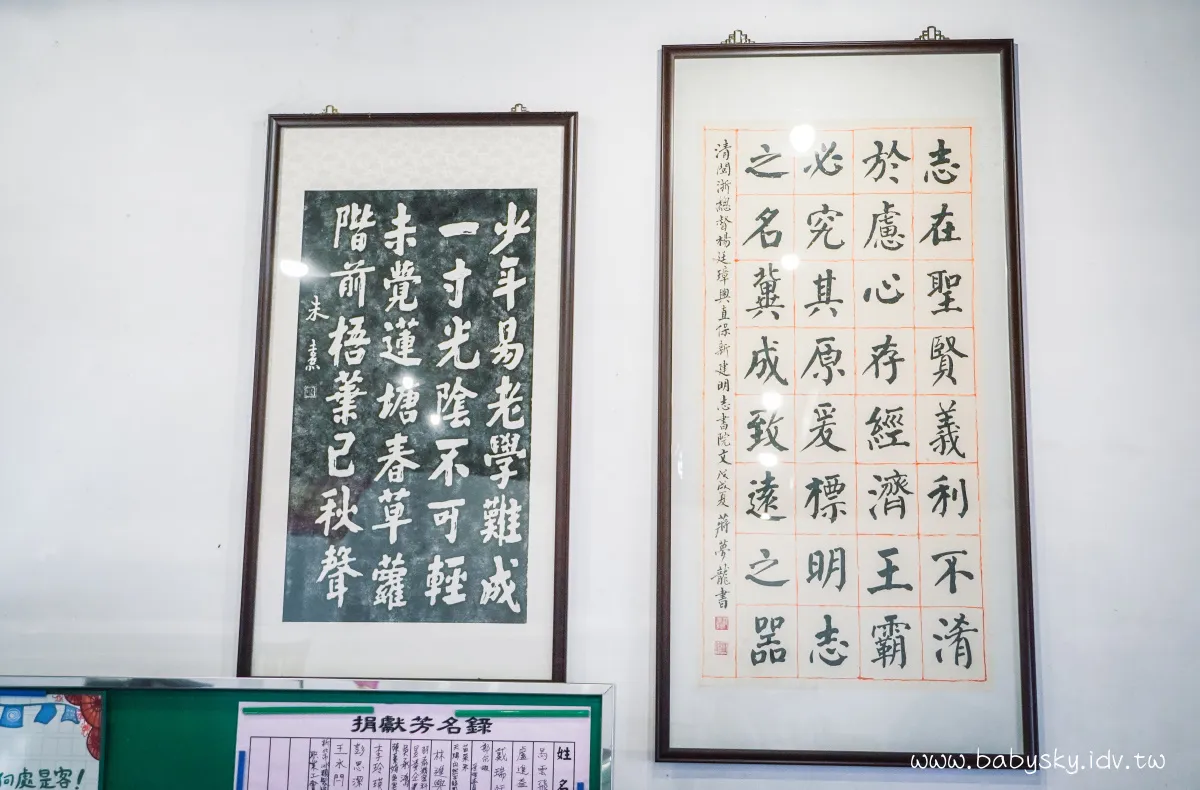 少年易老學難成
一寸光陰不可輕
未覺蓮塘春草蘿
階前梧葉已秋聲
朱熹
志在聖賢義利不淆
於慮心存經濟王霸
必究其原爰標明志
之名冀成致遠之器
清閩浙總督楊廷璋興直保新建明志書院文戊戌夏蔣夢龍書
捐獻芳名錄
姓名
盧進益
戴瑞
李玲瑛
彭思潔
何處是客！
www.babysky.idv.tw